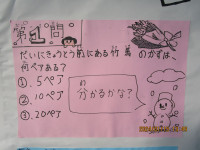 第1問
だいにきょうとう前にある竹馬のかずは、
何ペアある?
①.5ペア
②.10ペア
③.20ペア
分かるかな?